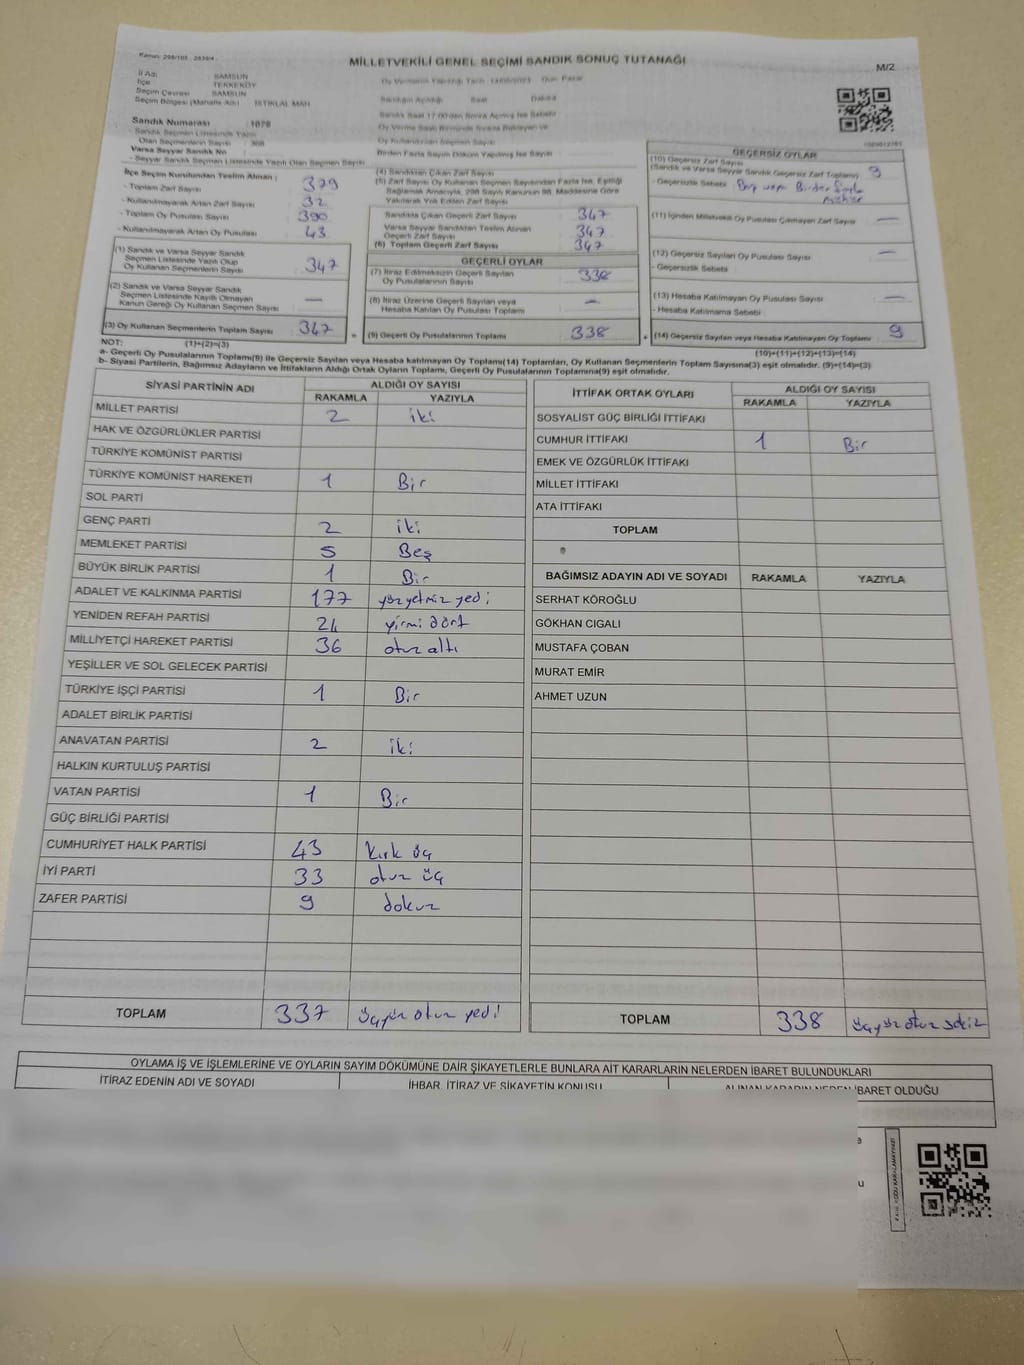 MİLLETVEKİLİ GENEL SEÇİMİ SANDIK SONUÇ TUTANAĞI
M/2
İl Adı SAMSUN
İlçe TEKKEKÖY
Seçim Çevresi SAMSUN
Seçim Bölgesi (Mahalle Adı) İSTİKLAL MAH
Sandık Numarası : 1078
- Sandık Seçmen Listesinde Yazılı
Olan Seçmenlerin Sayısı
Varsa Seyyar Sandık No
- Seyyar Sandık Seçmen Listesinde Yazılı Olan Seçmen Sayısı
Sandığın Açıldığı Saat Dakika
Birden Fazla Sayım Döküm Yapılmış İse Sayısı
İlçe Seçim Kurulundan Teslim Alınan :
- Toplam Zarf Sayısı 379
- Kullanılmayarak Artan Zarf Sayısı 32
- Toplam Oy Pusulası Sayısı 390
- Kullanılmayarak Artan Oy Pusulası 43
(1) Sandık ve Varsa Seyyar Sandık
Seçmen Listesinde Yazılı Olup
Oy Kullanan Seçmenlerin Sayısı 347
(2) Sandık ve Varsa Seyyar Sandık
Seçmen Listesinde Kayıtlı Olmayan
Kanun Gereği Oy Kullanan Seçmen Sayısı —
(3) Oy Kullanan Seçmenlerin Toplam Sayısı 347
(4) Sandıktan Çıkan Zarf Sayısı
(5) Zarf Sayısı Oy Kullanan Seçmen Sayısından Fazla İse, Eşitliği
Sağlamak Amacıyla, 298 Sayılı Kanunun 98. Maddesine Göre
Yakılarak Yok Edilen Zarf Sayısı
Sandıkta Çıkan Geçerli Zarf Sayısı 347
Varsa Seyyar Sandıktan Teslim Alınan
Geçerli Zarf Sayısı 347
(6) Toplam Geçerli Zarf Sayısı 347
GEÇERLİ OYLAR
(7) İtiraz Edilmeksizin Geçerli Sayılan
Oy Pusulalarının Sayısı 338
(8) İtiraz Üzerine Geçerli Sayılan veya
Hesaba Katılan Oy Pusulası Toplamı —
(9) Geçerli Oy Pusulalarının Toplamı 338
GEÇERSİZ OYLAR
(10) Geçersiz Zarf Sayısı
(Sandık ve Varsa Seyyar Sandık Geçersiz Zarf Toplamı) 9
- Geçersizlik Sebebi
(11) İçinden Milletvekili Oy Pusulası Çıkmayan Zarf Sayısı —
(12) Geçersiz Sayılan Oy Pusulası Sayısı —
- Geçersizlik Sebebi :
(13) Hesaba Katılmayan Oy Pusulası Sayısı —
- Hesaba Katılmama Sebebi
(14) Geçersiz Sayılan veya Hesaba Katılmayan Oy Toplamı 9
NOT: (1)+(2)=(3) (10)+(11)+(12)+(13)=(14)
a- Geçerli Oy Pusulalarının Toplamı(9) ile Geçersiz Sayılan veya Hesaba katılmayan Oy Toplamı(14) Toplamları, Oy Kullanan Seçmenlerin Toplam Sayısına(3) eşit olmalıdır. (9)+(14)=(3)
b- Siyasi Partilerin, Bağımsız Adayların ve İttifakların Aldığı Ortak Oyların Toplamı, Geçerli Oy Pusulalarının Toplamına(9) eşit olmalıdır.
SİYASİ PARTİNİN ADI ALDIĞI OY SAYISI
RAKAMLA YAZIYLA
MİLLET PARTİSİ 2 iki
HAK VE ÖZGÜRLÜKLER PARTİSİ
TÜRKİYE KOMÜNİST PARTİSİ
TÜRKİYE KOMÜNİST HAREKETİ 1 Bir
SOL PARTİ
GENÇ PARTİ 2 iki
MEMLEKET PARTİSİ 5 Beş
BÜYÜK BİRLİK PARTİSİ 1 Bir
ADALET VE KALKINMA PARTİSİ 177 yüzyetmiz yedi
YENİDEN REFAH PARTİSİ 24 yirmi dört
MİLLİYETÇİ HAREKET PARTİSİ 36 otuz altı
YEŞİLLER VE SOL GELECEK PARTİSİ
TÜRKİYE İŞÇİ PARTİSİ 1 Bir
ADALET BİRLİK PARTİSİ
ANAVATAN PARTİSİ 2 iki
HALKIN KURTULUŞ PARTİSİ
VATAN PARTİSİ 1 Bir
GÜÇ BİRLİĞİ PARTİSİ
CUMHURİYET HALK PARTİSİ 43 kırk üç
İYİ PARTİ 33 otuz üç
ZAFER PARTİSİ 9 dokuz
TOPLAM 337 üçyüz otuz yedi
İTTİFAK ORTAK OYLARI ALDIĞI OY SAYISI
RAKAMLA YAZIYLA
SOSYALİST GÜÇ BİRLİĞİ İTTİFAKI
CUMHUR İTTİFAKI 1 Bir
EMEK VE ÖZGÜRLÜK İTTİFAKI
MİLLET İTTİFAKI
ATA İTTİFAKI
TOPLAM
BAĞIMSIZ ADAYIN ADI VE SOYADI RAKAMLA YAZIYLA
SERHAT KÖROĞLU
GÖKHAN CIGALI
MUSTAFA ÇOBAN
MURAT EMİR
AHMET UZUN
TOPLAM 338 üçyüz otuz sekiz
OYLAMA İŞ VE İŞLEMLERİNE VE OYLARIN SAYIM DÖKÜMÜNE DAİR ŞİKAYETLERLE BUNLARA AİT KARARLARIN NELERDEN İBARET BULUNDUKLARI
İTİRAZ EDENİN ADI VE SOYADI İHBAR, İTİRAZ VE ŞİKAYETİN KONUSU ALINAN KARARIN NEDEN İBARET OLDUĞU